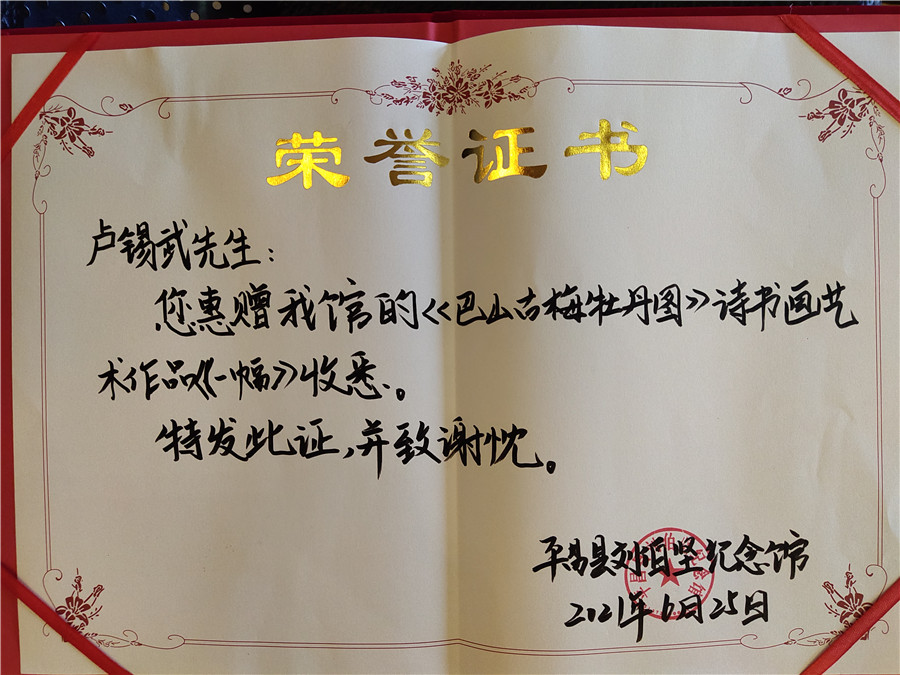 荣誉证书
卢锡武先生：
您惠赠我馆的《巴山古梅牡丹图》诗书画艺
术作品《一幅》收悉。
特发此证，并致谢忱。
平昌县刘伯坚纪念馆
2021年6月25日